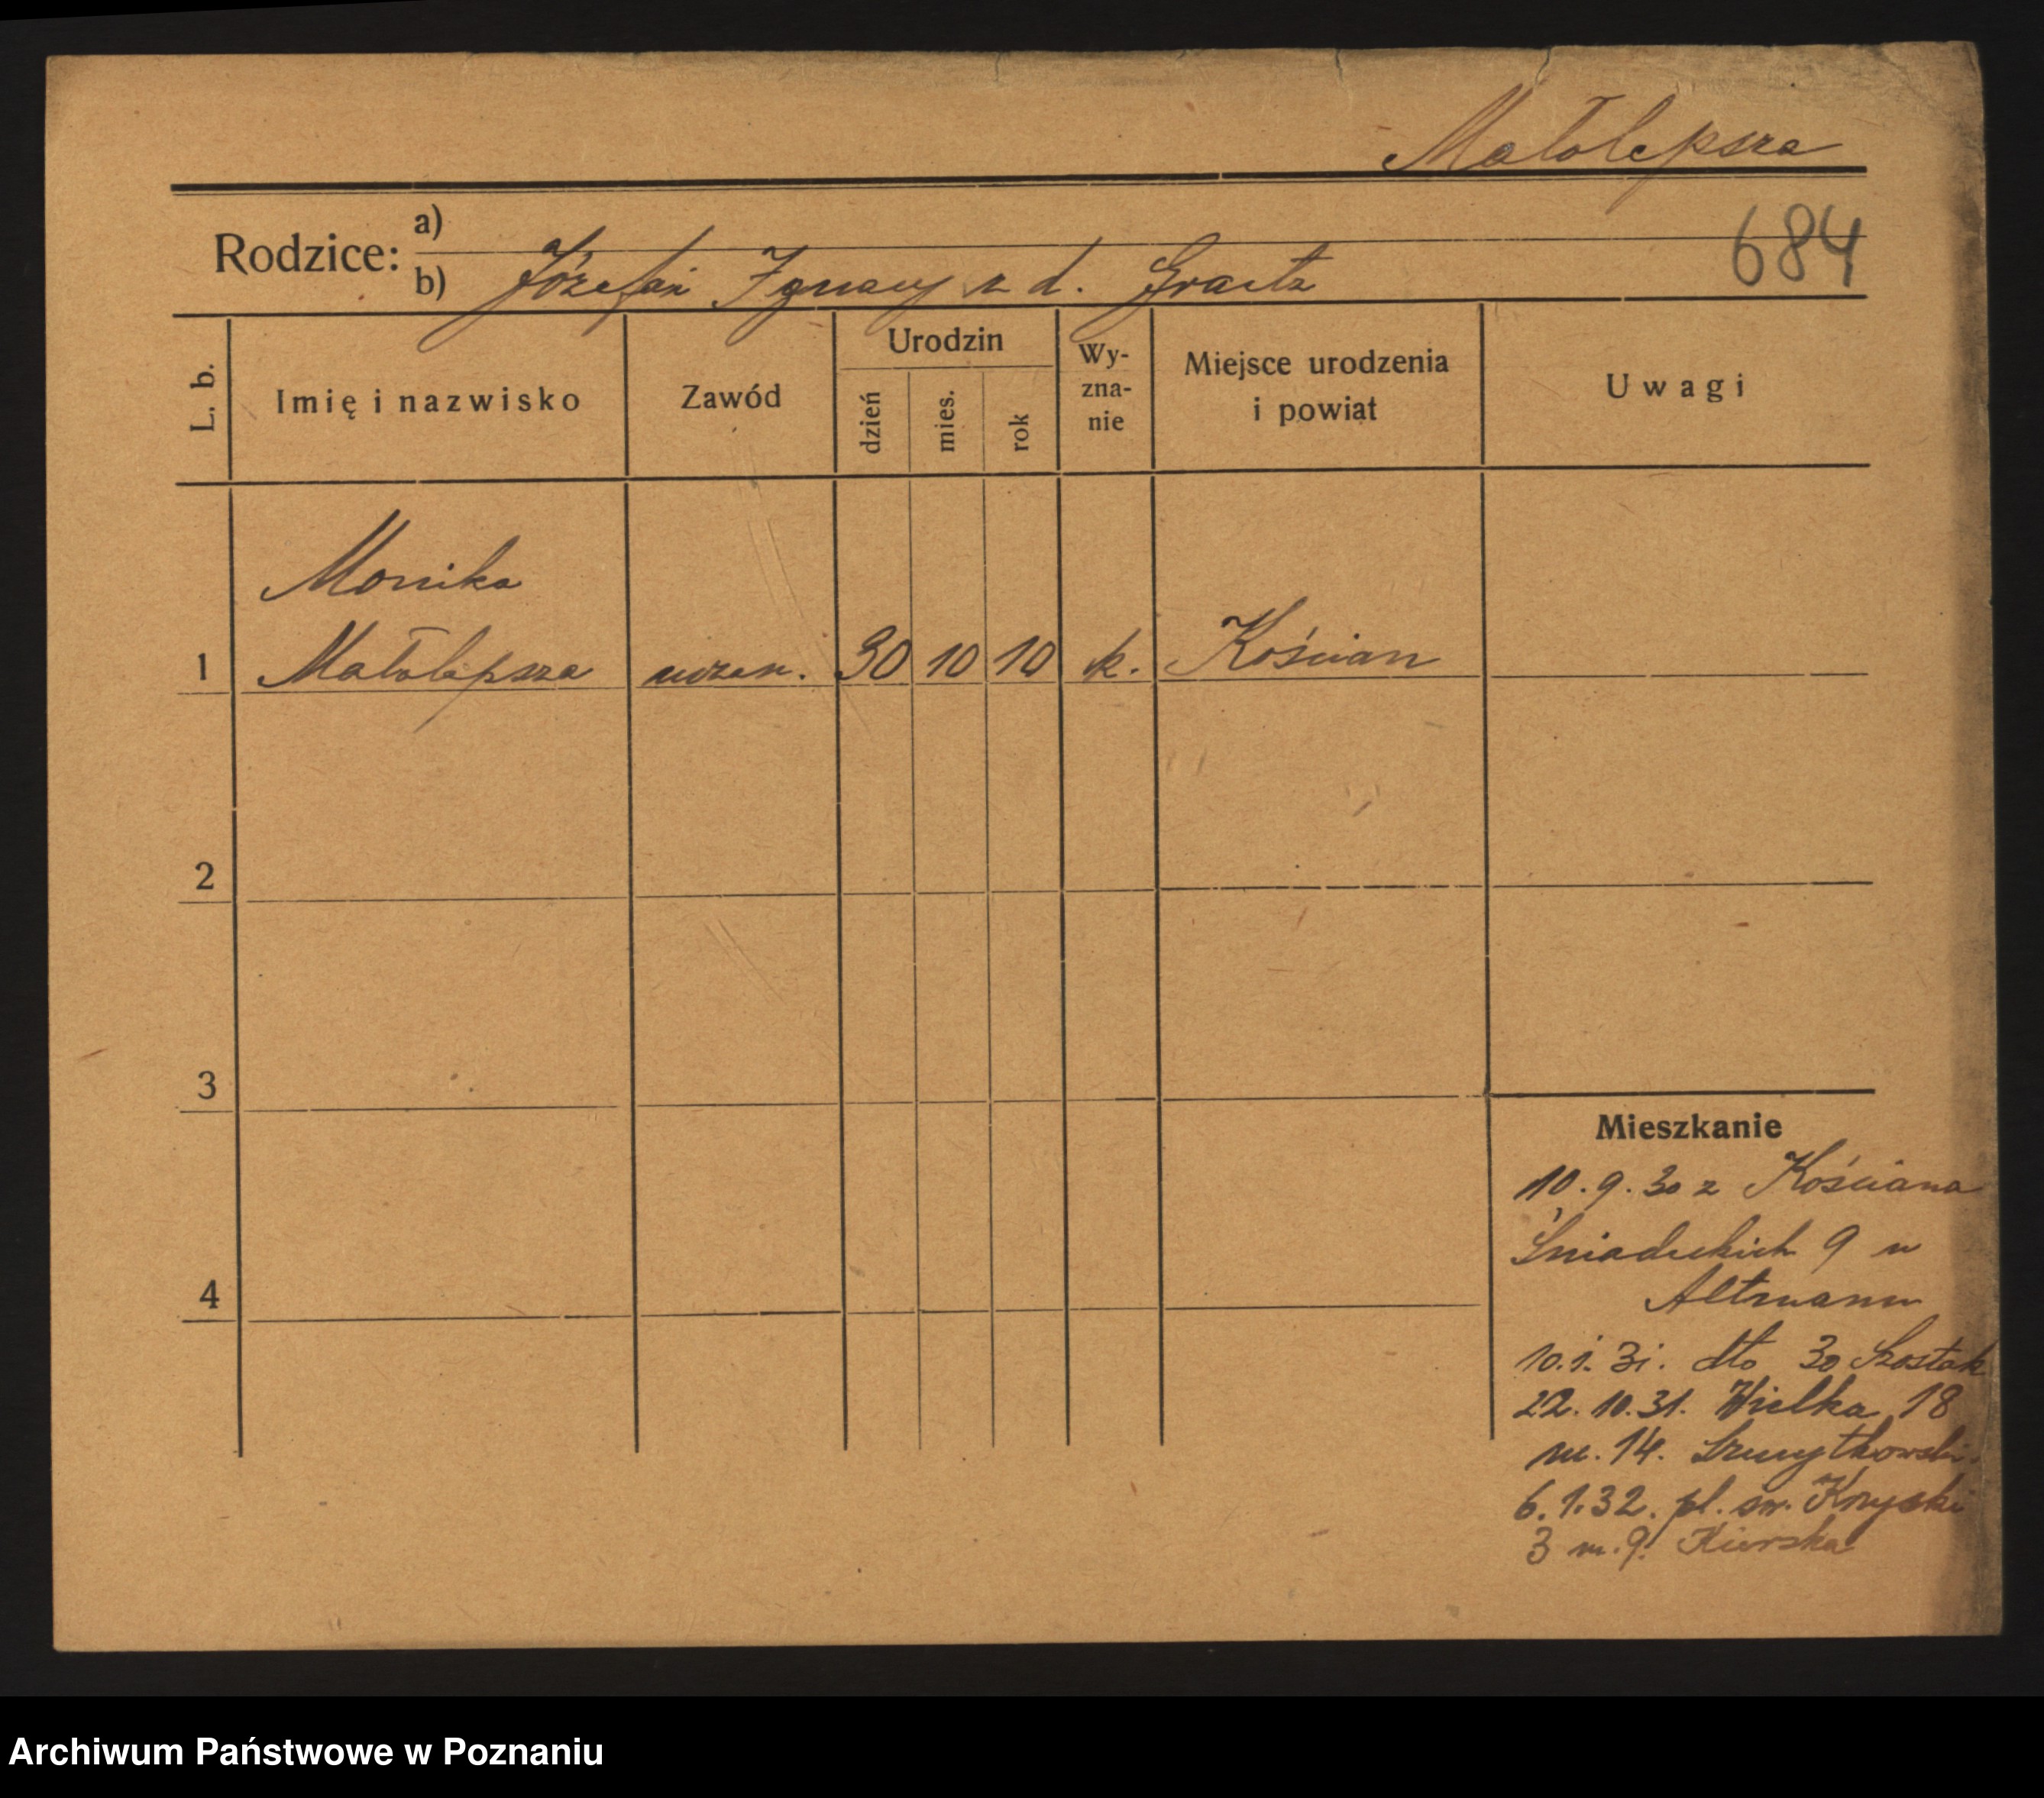 Małolepsza
684
Rodzice:
a)
b) Józefa i Ignacy z d. Graetz
L. b.
Imię i nazwisko
Zawód
Urodzin
dzień
mies.
rok
Wy-
zna-
nie
Miejsce urodzenia
i powiat
Uwagi
Monika
1 Małolepsza uczen. 30 10 10 k. Kościan
2
3
4
Mieszkanie
10.9.30 z Kościana
Śniadeckich 9 u
Altmann
10.1.31. dto 30 Szostak
22.10.31. Wielka 18
m. 14. Szmytkowski.
6.1.32. pl. św. Krzyski
3 m. 9. Kierska
Archiwum Państwowe w Poznaniu